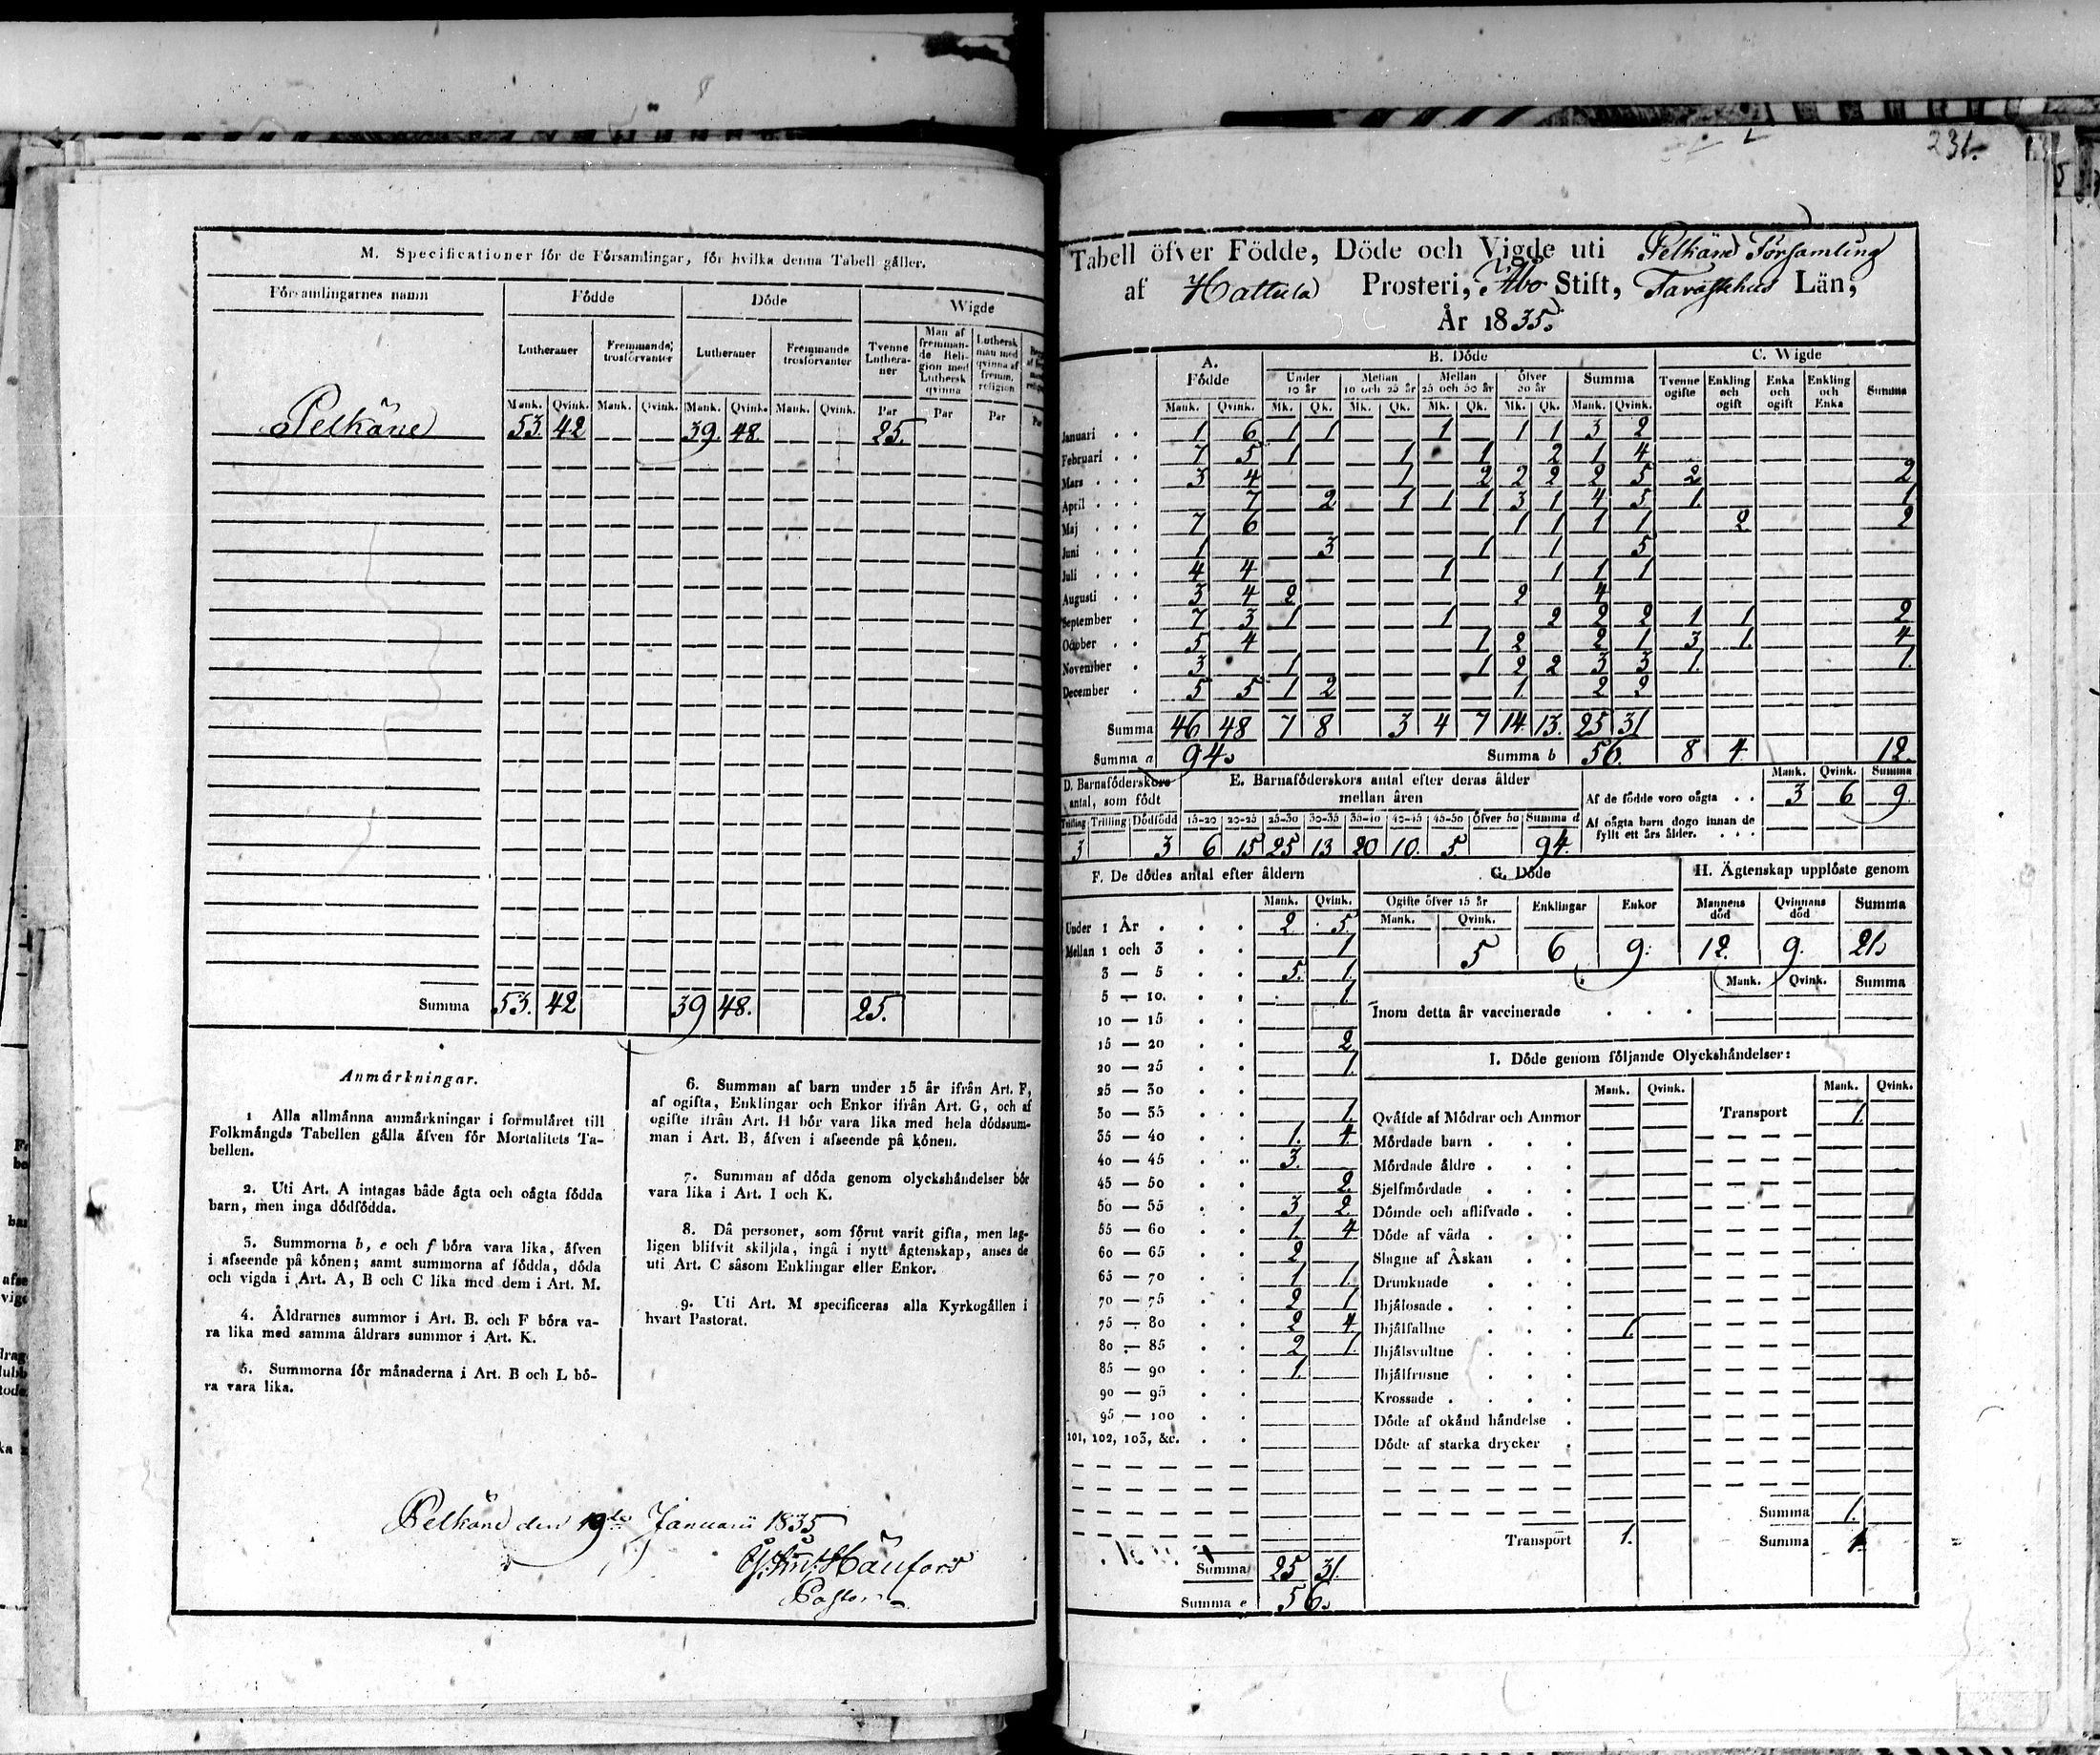 M. Specificationer för de Församlingar, för hvilka denna Tabell gäller.
Församlingarnes namn Födde Döde Wigde
Lutheraner Fremmande trosförvanter Lutheraner Fremmande trosförvanter Tvenne Lutheraner Man af fremmande Religion med Luthersk qvinna Luthersk man med qvinna af fremm. religion
Mank. Qvink. Mank. Qvink. Mank. Qvink. Mank. Qvink. Par Par Par
Pelkäne 53. 42 39. 48. 25.
Summa 53. 42 39 48. 25.
Anmärkningar.
1 Alla allmänna anmärkningar i formuläret till
Folkmängds Tabellen gälla äfven för Mortalitets Ta-
bellen.
2. Uti Art. A intagas både ägta och oägta födda
barn, men inga dödfödda.
3. Summorna b, e och f böra vara lika, äfven
i afseende på könen; samt summorna af födda, döda
och vigda i Art. A, B och C lika med dem i Art. M.
4. Åldrarnes summor i Art. B. och F böra va-
ra lika med samma åldrars summor i Art. K.
5. Summorna för månaderna i Art. B och L bö-
ra vara lika.
6. Summan af barn under 15 år ifrån Art. F,
af ogifta, Enklingar och Enkor ifrån Art. G, och af
ogifte ifrån Art. H bör vara lika med hela dödssum-
man i Art. B, äfven i afseende på könen.
7. Summan af döda genom olyckshändelser bör
vara lika i Art. I och K.
8. Då personer, som förut varit gifta, men lag-
ligen blifvit skiljda, ingå i nytt ägtenskap, anses de
uti Art. C såsom Enklingar eller Enkor.
9. Uti Art. M specificeras alla Kyrkogällen i
hvart Pastorat.
Pelkäne den 19de Januarii 1835
Pastor
231.
Tabell öfver Födde, Döde och Vigde uti Pelkäne Församling
af Hattula Prosteri, Åbo Stift, Tavastehus Län,
År 1835.
A. Födde B. Döde C. Wigde
Under 10 år Mellan 10 och 25 år Mellan 25 och 50 år Öfver 50 år Summa Tvenne ogifte Enkling och ogift Enka och ogift Enkling och Enka Summa
Mank. Qvink. Mk. Qk. Mk. Qk. Mk. Qk. Mk. Qk. Mank. Qvink.
Januari 1 6 1 1 1 1 1 3 2
Februari 7 5 1 1 1 2 1 4
Mars 3 4 1 2 2 2 2 5 2 2
April 7 2 1 1 1 3 1 4 5 1. 1
Maj 7 6 1 1 1 1 2. 2
Juni 1 3 1 1 5
Juli 4 4 1 1 1 1
Augusti 3 4 2 2 4
September 7 3 1 1 2 2 2 1 1 2
October 5 4 1 2 2 1 3 1. 4
November 3 1 1 2 2 3 3 1. 1.
December 5 5 1 2 1. 2 2
Summa 46 48 7 8 3 4 7 14. 13. 25 31
Summa a 94. Summa b 56. 8 4. 12.
D. Barnaföderskors antal, som födt
E. Barnaföderskors antal efter deras ålder mellan åren
Mank. Qvink. Summa
Af de födde voro oägta 3 6 9.
Af oägta barn dogo innan de
fyllt ett års ålder.
Tvilling Trilling Dödfödd 15-20 20-25 25-30 30-35 35-40 40-45 45-50 Öfver 50 Summa d
3 3 6 15 25 13 20 10. 5 94.
F. De dödes antal efter åldern
Mank. Qvink.
Under 1 År 2 5
Mellan 1 och 3 1
3 — 5 5. 1.
5 — 10. 1.
10 — 15
15 — 20 2
20 — 25 1.
25 — 30
30 — 35 1.
35 — 40 1. 4.
40 — 45 3.
45 — 50 2.
50 — 55 3 2.
55 — 60 1. 4
60 — 65 2
65 — 70 1 1.
70 — 75 2 1
75 — 80 2 4.
80 — 85 2 1.
85 — 90 1.
90 — 95
95 — 100
101, 102, 103, &c.
Summa 25 31.
Summa e 56.
G. Döde
Ogifte öfver 15 år Enklingar Enkor
Mank. Qvink.
5 6 9.
H. Ägtenskap upplöste genom
Mannens död Qvinnans död Summa
12. 9. 21.
Mank. Qvink. Summa
Inom detta år vaccinerade
I. Döde genom följande Olyckshändelser:
Mank. Qvink. Mank. Qvink.
Qväfde af Mödrar och Ammor Transport 1.
Mördade barn
Mördade äldre
Sjelfmördade
Dömde och aflifvade
Döde af våda
Slagne af Åskan
Drunknade
Ihjälosade
Ihjälfallne 1.
Ihjälsvultne
Ihjälfrusne
Krossade
Döde af okänd händelse
Döde af starka drycker
Summa 1.
Transport 1. Summa 1.